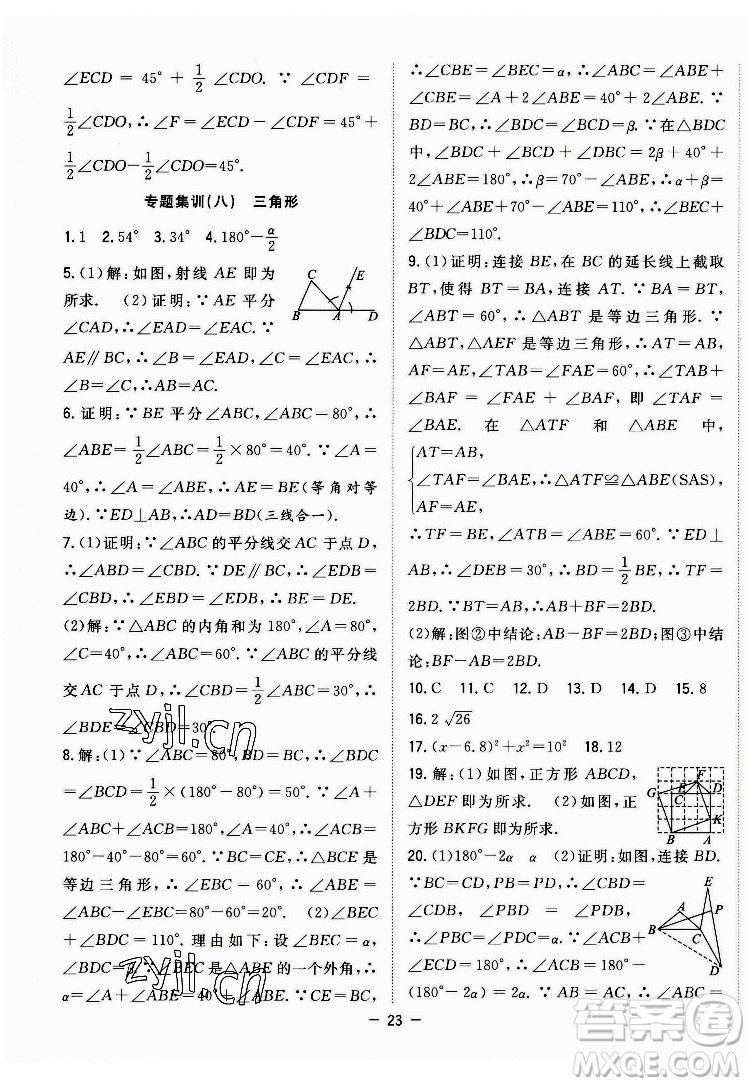 ∠ECD = 45° + 1/2∠CDO. ∵ ∠CDF =
1/2∠CDO, ∴∠F = ∠ECD − ∠CDF = 45° +
1/2∠CDO − 1/2∠CDO = 45°.
专题集训(八) 三角形
1.1 2.54° 3.34° 4.180° − α/2
5.(1)解:如图,射线 AE 即为
所求. (2)证明:∵AE 平分
∠CAD,∴∠EAD=∠EAC. ∵
AE∥BC,∴∠B=∠EAD,∠C=∠EAC,∴
∠B=∠C,∴AB=AC.
6.证明:∵BE平分∠ABC,∠ABC=80°,∴
∠ABE = 1/2∠ABC = 1/2 × 80° = 40°. ∵∠A =
40°,∴∠A=∠ABE,∴AE=BE(等角对等
边). ∵ED⊥AB,∴AD=BD(三线合一).
7.(1)证明:∵∠ABC的平分线交AC于点D,
∴∠ABD = ∠CBD. ∵DE∥BC,∴∠EDB =
∠CBD,∴∠EBD=∠EDB,∴BE=DE.
(2)解:∵△ABC的内角和为180°,∴∠ABC=
180°−80°−40°=60°. ∵∠ABC的平分线
交AC于点D,∴∠CBD=1/2∠ABC=30°,∴
∠BDE=∠CBD=30°.
8.解:(1)∵∠ABC=80°,BD=BC,∴∠BDC
=∠BCD=1/2×(180°−80°)=50°. ∵∠A+
∠ABC+∠ACB=180°,∴∠ACB=180°−
40°−80°=60°. ∵CE=BC,∴△BCE是
等边三角形,∴∠EBC=60°,∴∠ABE=
∠ABC−∠EBC=20°. (2)∠BEC+
∠BDC=110°. 理由如下:设∠BEC=α,
∠BDC=β. ∵∠BEC是△ABE的一个外角,∴
α=∠A+∠ABE=40°+∠ABE. ∵CE=BC,
∴∠CBE=∠BEC=α,∴∠ABC=∠ABE+
∠CBE=∠A+2∠ABE=40°+2∠ABE. ∵
BD=BC,∴∠BDC=∠BCD=β. ∵在△BDC
中,∠BDC+∠BCD+∠DBC=2β+40°+
2∠ABE=180°,∴β=70°−∠ABE,∴α+β=
40°+∠ABE+70°−∠ABE=110°,∴∠BEC+
∠BDC=110°.
9.(1)证明:连接BE,在BC的延长线上截取
BT,使得BT=BA,连接AT. ∵BT=BA,
∠ABT=60°,∴△ABT是等边三角形. ∵
∠ABT,△AEF是等边三角形,∴AT=AB,
AF=AE,∠BAT=∠FAE=60°,∴∠BAT−
∠BAF=∠FAE−∠BAF,即∠TAF=
∠BAE. 在△ATF和△ABE中,
AT=AB,
∠TAF=∠BAE,∴△ATF≌△ABE(SAS),
AF=AE,
∴TF=BE,∠ATB=∠ABE=60°. ∵ED⊥
AB,∴∠DEB=30°,∴BD=1/2BE,∴TF=
2BD. ∵BT=AB,∴AB+BF=2BD.
(2)解:图②中结论:AB−BF=2BD. 图③中结
论:BF−AB=2BD.
10.C 11.C 12.D 13.C 14.D 15.8
16.2√26
17.(x−6.8)²+x²=10² 18.12
19.解:(1)如图,正方形ABCD,
△DEF即为所求. (2)如图,正
方形BKFG即为所求.
20.(1)180°−2α α (2)证明:如图,连接BD.
∵BC=CD,PB=PD,∴∠CBD=
∠CDB,∠PBD=∠PDB,∴
∠PBD−∠CBD=∠PDB−
∠CDB,∴∠CBP=∠CDP=
α. ∵CE=CD,∴∠DEC=
∠CDE=α. ∵∠CDE+∠DEC+
∠ECD=180°,∴∠ECD=180°−2α. ∵∠BAC+∠ECD=2α+
(180°−2α)=180°,∵AB=AC,∴∠ABC=
C
E
B
A
D
F
E
G
D
C
K
B
A
E
A
P
B
C
D
zyjl.cn
zyjl.cn
答案圈
MXQE.COM
− 23 −